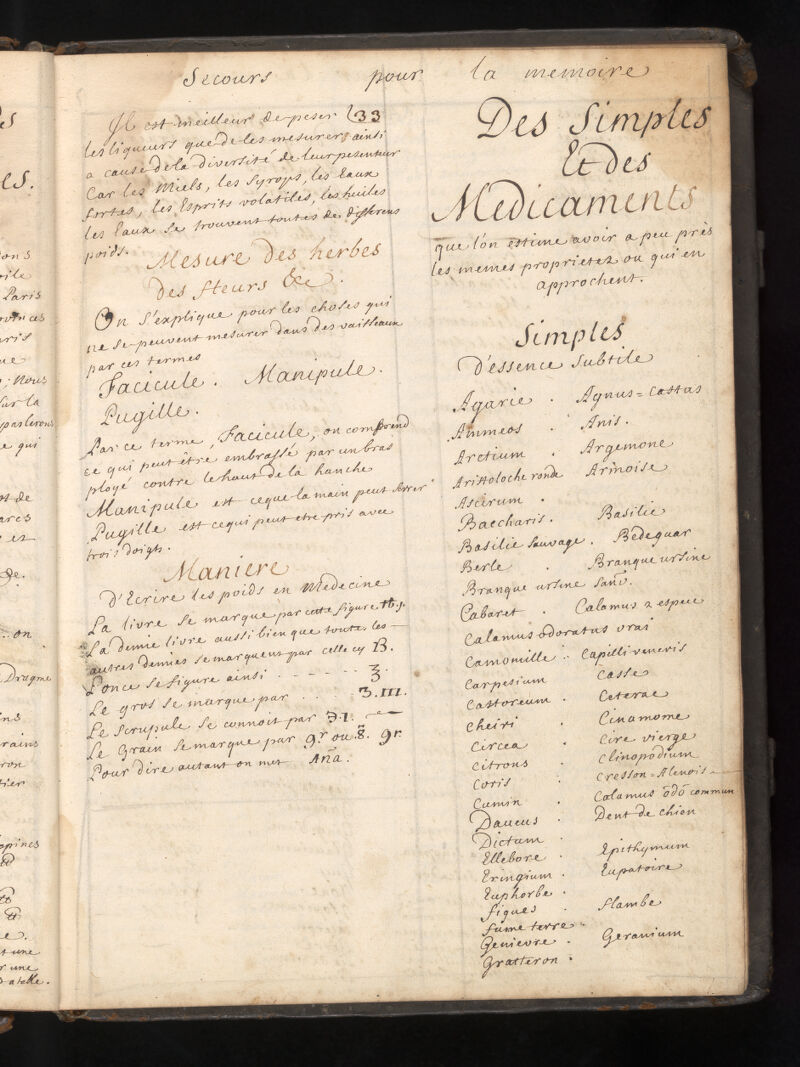 Secours pour la memoire
33
Il est meilleur de peser
les liqueurs que de les mesurer, ainsi
a cause de la diversité de leur pesenteur
Car les Miels, les Syrops, les Eaux
fortes, les Esprits volatiles, les huiles
les Eaux se trouvent toutes de differens
poids.
Mesure des herbes
des fleurs &c.
On s'explique pour les choses qui
ne se peuvent mesurer dans des vaisseaux
par ces termes
Facicule. Manipule.
Pugille.
Par ce terme, Facicule, on comprend
ce qui peut être embrassé par un bras
ployé contre le haut de la hanche
Manipule est ce que la main peut serrer
Pugille est ce qui peut etre pris avec
trois doigts.
Maniere
D'Ecrire les poids en Medecine
La livre se marque par cette figure ℔.j.
La demie livre aussi bien que toutes les
autres demies se marquent par celle cy ß.
L'once se figure ainsi - - - - - ℥
Le gros se marque par . . . ʒ.III.
Le Scrupule se connoit par ℈.I.
Le Grain se marque par gr. ou g̃. gr
Pour dire autant on met Aña.
Des Simples
Et des
Medicaments
que l'on estime avoir a peu près
les memes proprietez ou qui en
approchent.
Simples
D'essence Subtile
Agaric . Agnus=castas
Ammeos . Anis.
Arctium . Argemone
Aristoloche ronda Armoise
Ascirum .
Baccharis. Basilic
Basilic Sauvage. Bedeguar
Berle . Branque ursine
Branque ursine Sauv.
Cabaret . Calamus 2 espece
Calamus odoratus vrai
Camomille . Capilli veneris
Carpesium Casse
Castoreum . Ceterac
Cheiri . Cinamome
Circea . Cire vierge
Citrons . Clinopodium
Coris . Cresson=Alenois
Cumin . Calamus õdõ commun
Daucus . Dent de chien
Dictum .
Ellebore . Epithymum
Eringium . Eupatoire
Euphorbe .
Figues . Flambe
Fume terre .
Genievre . Geranium
Gratteron .